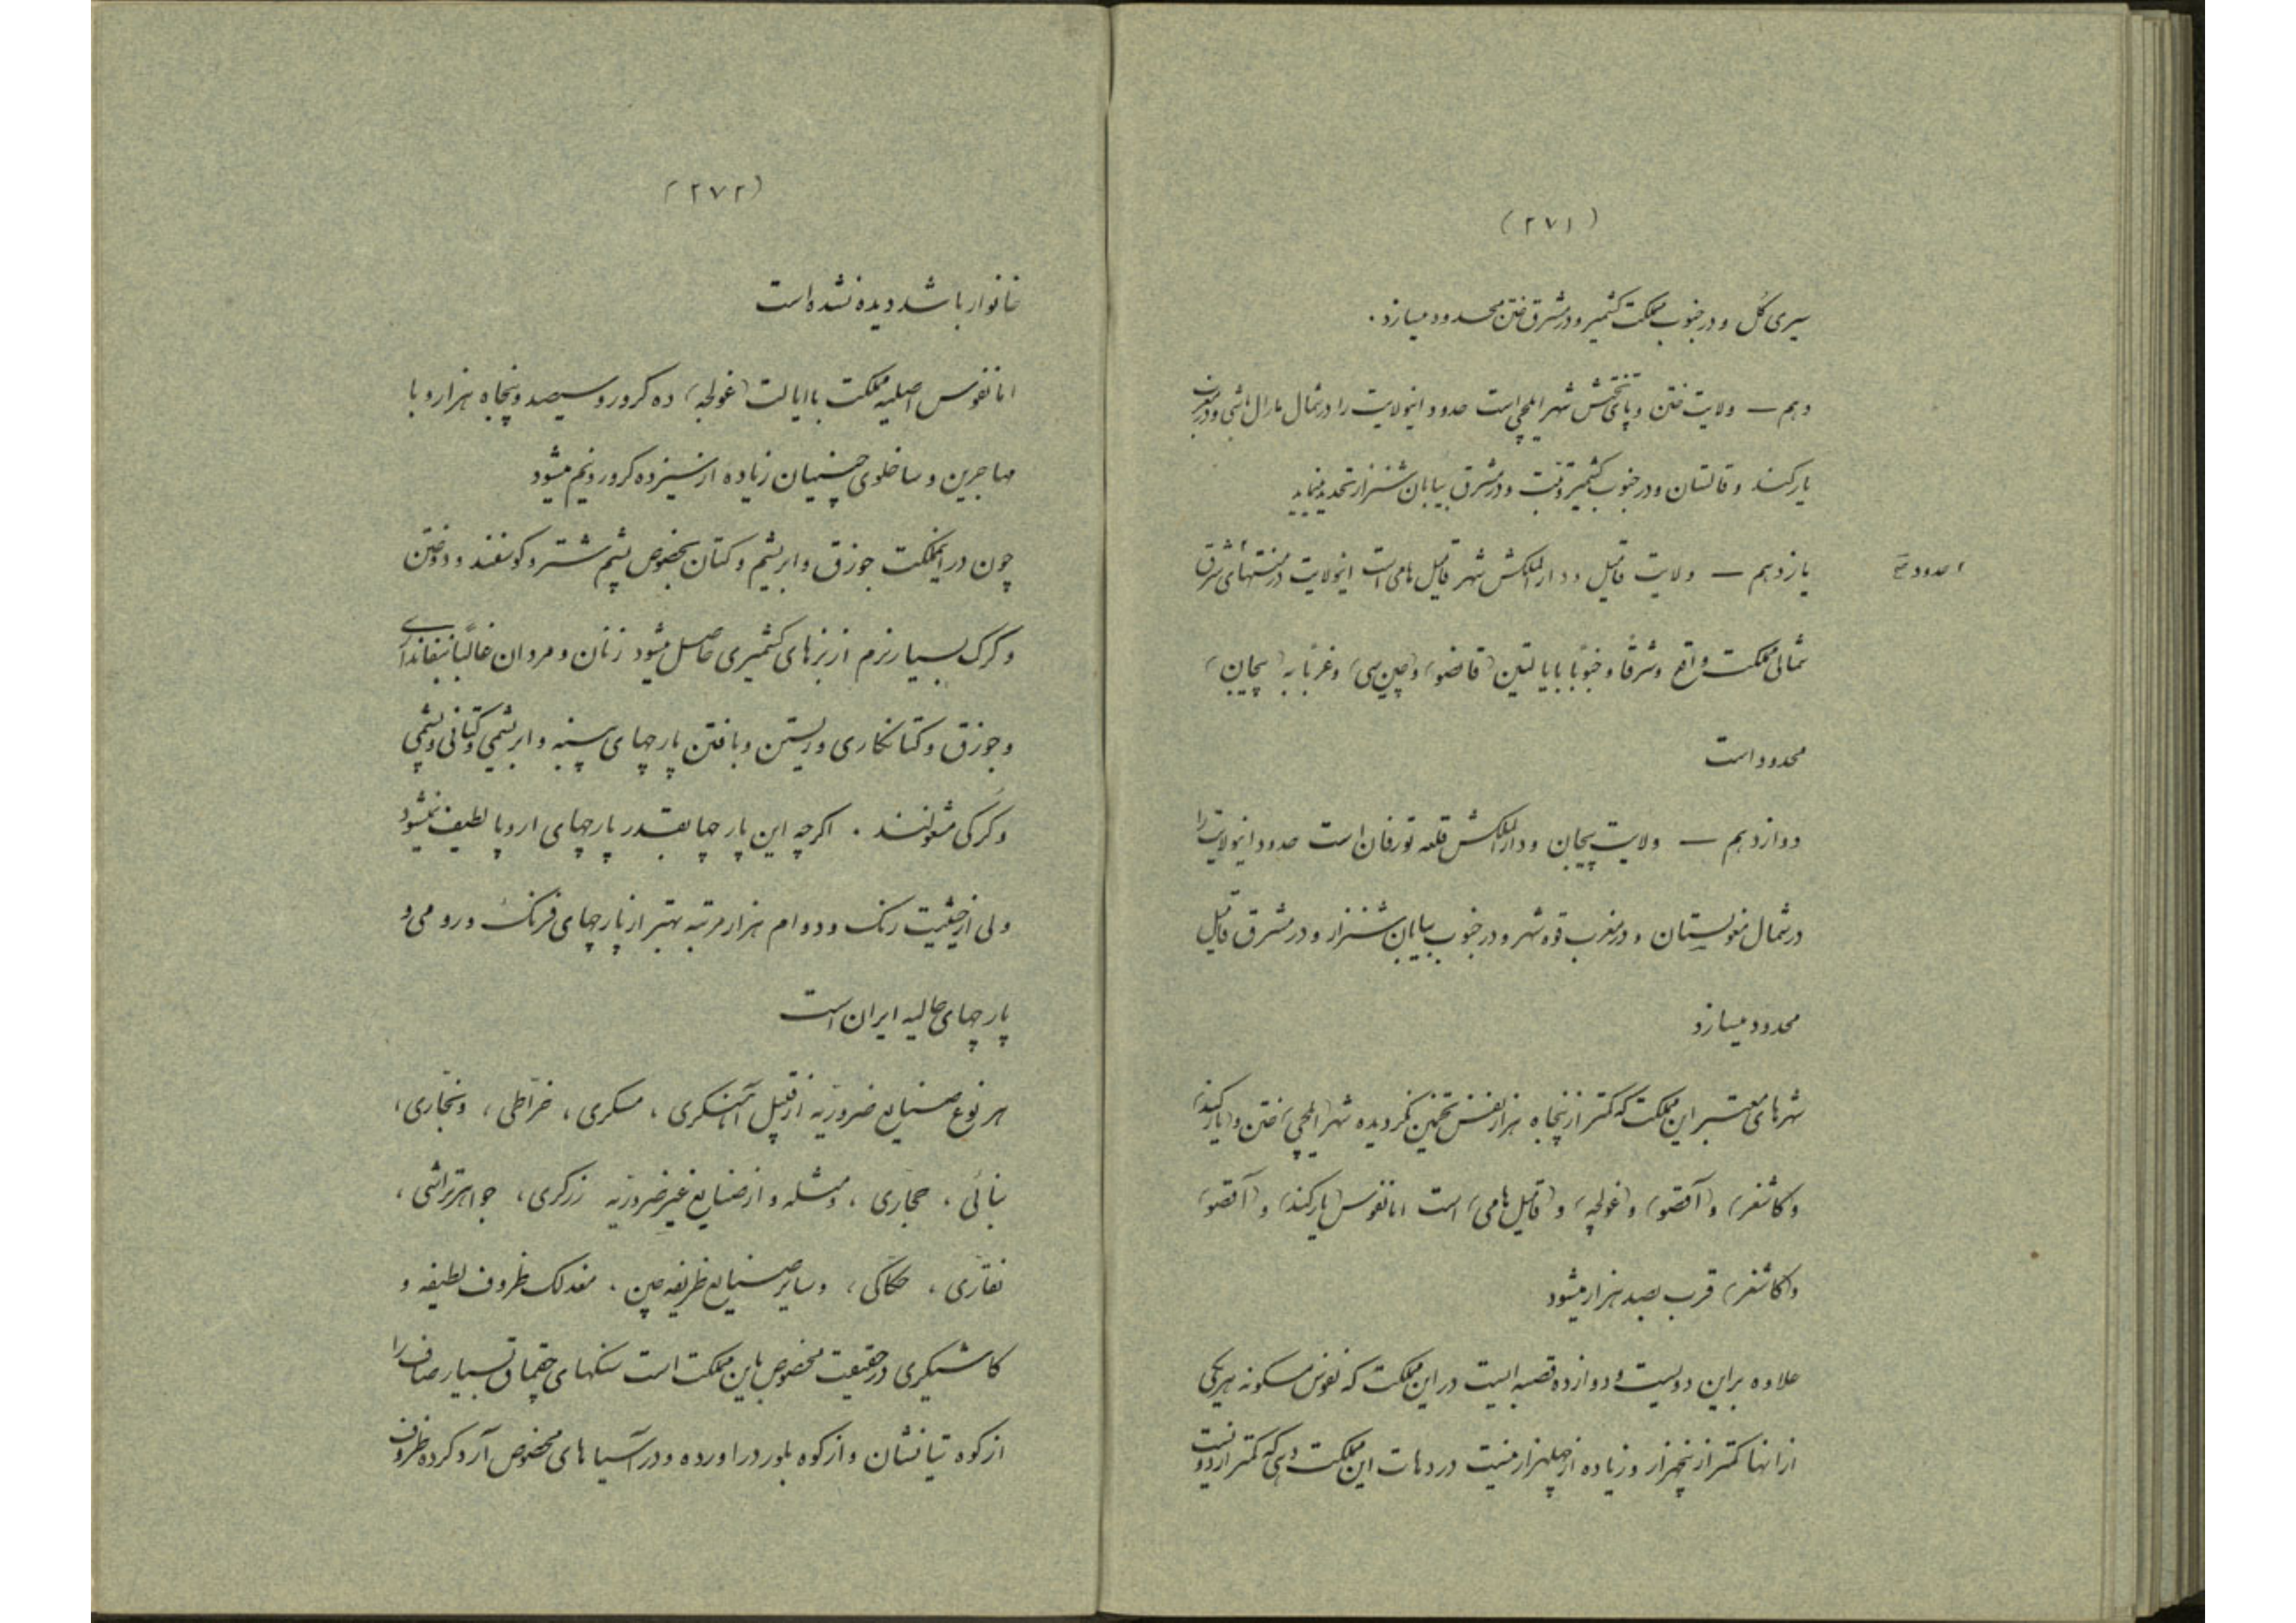 (۲۷۱)
سیری گل و در جنوب مملکت کشمیر و در مشرق ختن محدود میسازد .
دهم — ولایت ختن و پای تختش شهر ایلچی است حدود اینولایت را در شمال مارال باشی و در مغرب
یارکند و قالتان و در جنوب کشمیر و تبت و در مشرق بیابان شنزار تحدید مینماید
یازدهم — ولایت قامیل و دارالملکش شهر قامیل هامی است اینولایت در منتهای شرق
حدود
شمالی مملکت واقع و شرقاً و جنوباً با ایالتین (قانضو) و (چین سی) و غرباً به (پیجان)
محدود است
دوازدهم — ولایت پیجان و دارالملکش قلعه تورفان است حدود اینولایت را
در شمال مغولستان و در مغرب قره شهر و در جنوب بیابان شنزار و در مشرق قامیل
محدود میسازد
شهرهای معتبر این مملکت که کمتر از پنجاه هزار نفس تخمین نگردیده شهر (ایلچی) ختن و (یارکند)
و (کاشغر) و (آقصو) و (غولجه) و (قامیل هامی) است اما نفوس (یارکند) و (آقصو)
و (کاشغر) قرب بصد هزار میشود
علاوه براین دویست و دوازده قصبه ایست در این مملکت که نفوس مسکونه هریکی
ازانها کمتر از پنجهزار و زیاده از چهلهزار نیست در دهات این مملکت دهی که کمتر از دویست
(۲۷۲)
خانوار باشد دیده نشده است
اما نفوس اصلیه مملکت با ایالت (غولجه) ده کرور و سیصد و پنجاه هزار و با
مهاجرین و ساخلوی چینیان زیاده از سیزده کرور و نیم میشود
چون در اینمملکت جوزق و ابریشم و کتان بخصوص پشم شتر و کوسفند و دوختن
و کرک بسیار نرم از بزهای کشمیری حاصل میشود زنان و مردان غالباً
و جوزق و کتانکاری و ریستن و بافتن پارچهای پنبه و ابریشمی و کتانی و پشمی
و کرکی مشغولند . اکرچه این پارچها بقدر پارچهای اروپا لطیف نمیشود
ولی از حیثیت رنک و دوام هزار مرتبه بهتر از پارچهای فرنک و رومی و
پارچهای حالیه ایران است
هر نوع صنایع ضروریّه از قبیل آهنکری ، مسکری ، خرّاطی ، و نجّاری ،
بنائی ، حجّاری ، و مثله و از صنایع غیر ضروریّه زرکری ، جواهرتراشی ،
نقّاری ، حکّاکی ، و سایر صنایع ظریفه چین . معذلک ظروف لطیفه و
کاشیکری در حقیقت مخصوص باین مملکت است سنکهای چقماق بسیار صاف را
از کوه تیانشان و از کوه بلور دراورده و در آسیاهای مخصوص آرد کرده ظروف